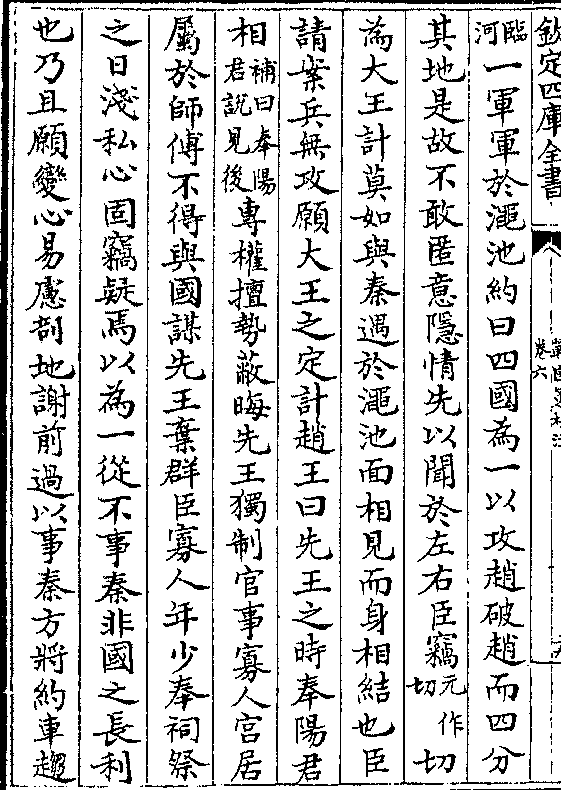 欽定四庫全書
卷六
臨河一軍軍於澠池約曰四國為一以攻趙破趙而四分
其地是故不敢匿意隱情先以聞於左右臣竊元作切切
為大王計莫如與秦遇於澠池面相見而身相結也臣
請案兵無攻願大王之定計趙王曰先王之時奉陽君
相補曰奉陽君説見後專權擅勢蔽晦先王獨制官事寡人宮居
屬於師傅不得與國謀先王棄群臣寡人年少奉祠祭
之日淺私心固竊疑焉以為一從不事秦非國之長利
也乃且願變心易慮剖地謝前過以事秦方將約車趨